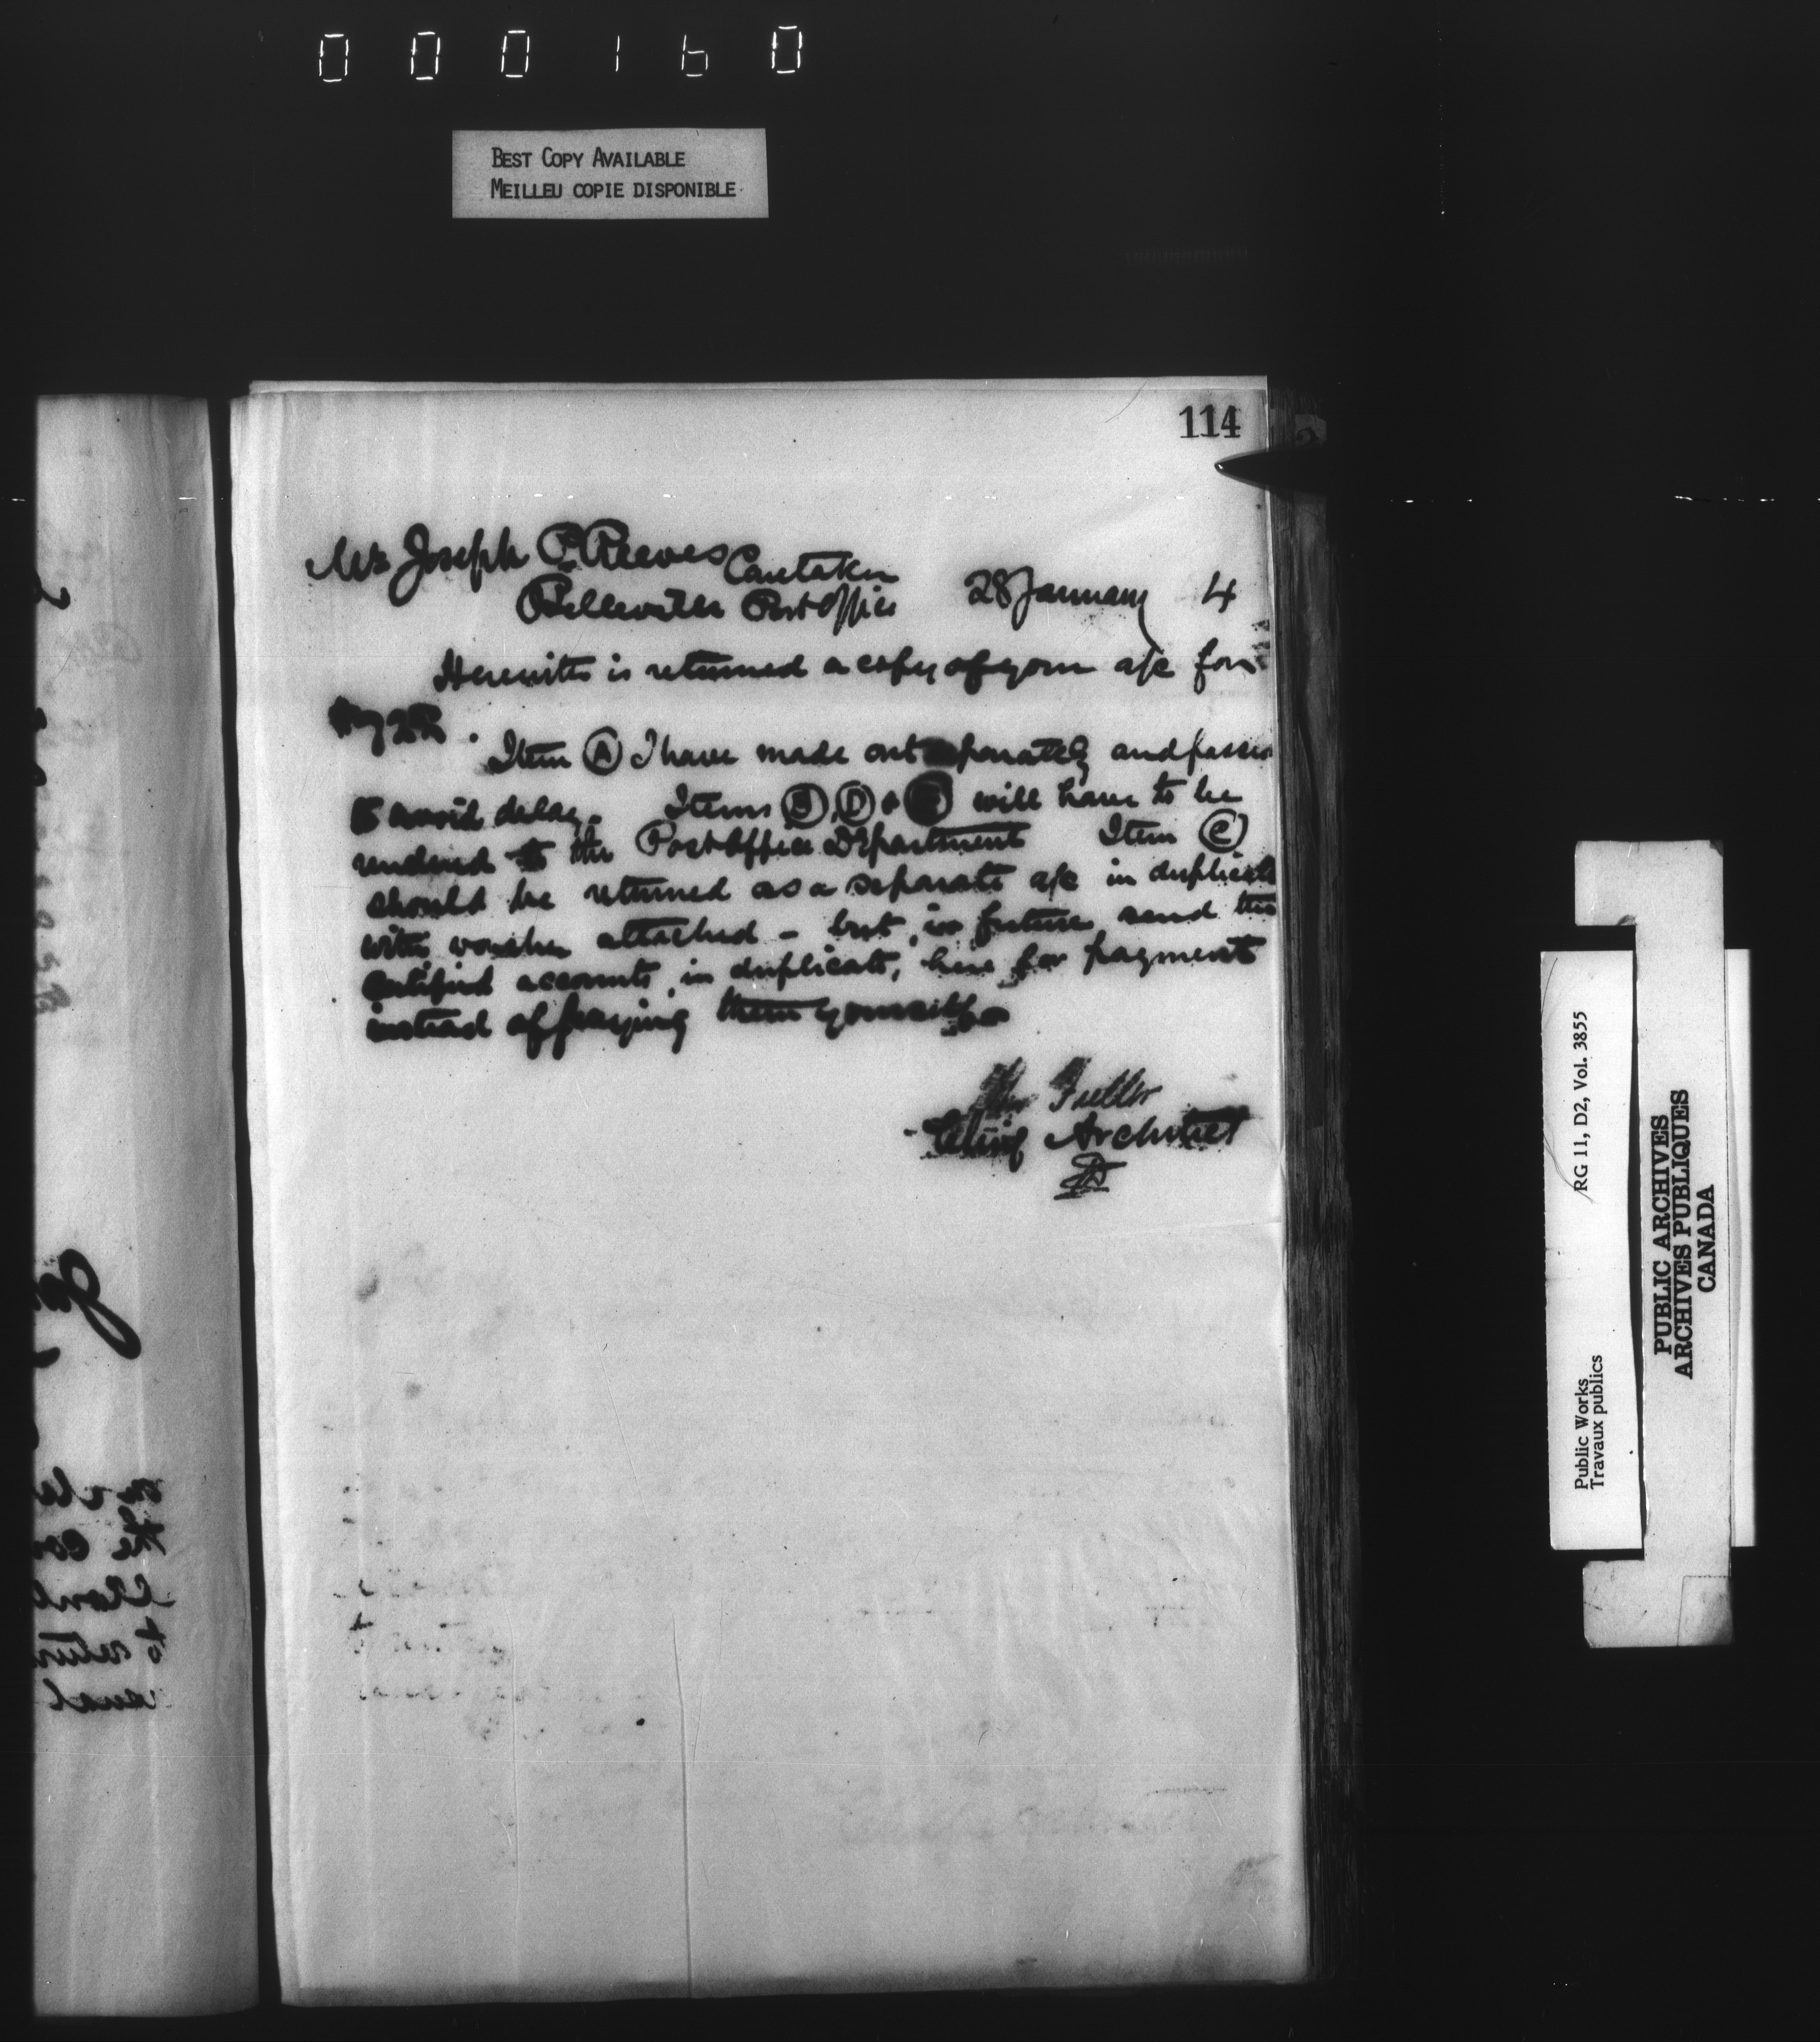 000160
BEST COPY AVAILABLE
MEILLEU COPIE DISPONIBLE
114
Mr Joseph P. Reeves Caretaker
Belleville Post Office 28 January 4
Herewith is returned a copy of your a/c for
Item A I have made out separately and passed
to avoid delay. Items B, D & will have to be
rendered to the Post Office Department Item C
should be returned as a separate a/c in duplicate
with voucher attached - but, in future, send the
certified accounts, in duplicate, here for payment
instead of paying them yourself.
Fuller
Chief Architect
RG 11, D2, Vol. 3855
Public Works
Travaux publics
PUBLIC ARCHIVES
ARCHIVES PUBLIQUES
CANADA